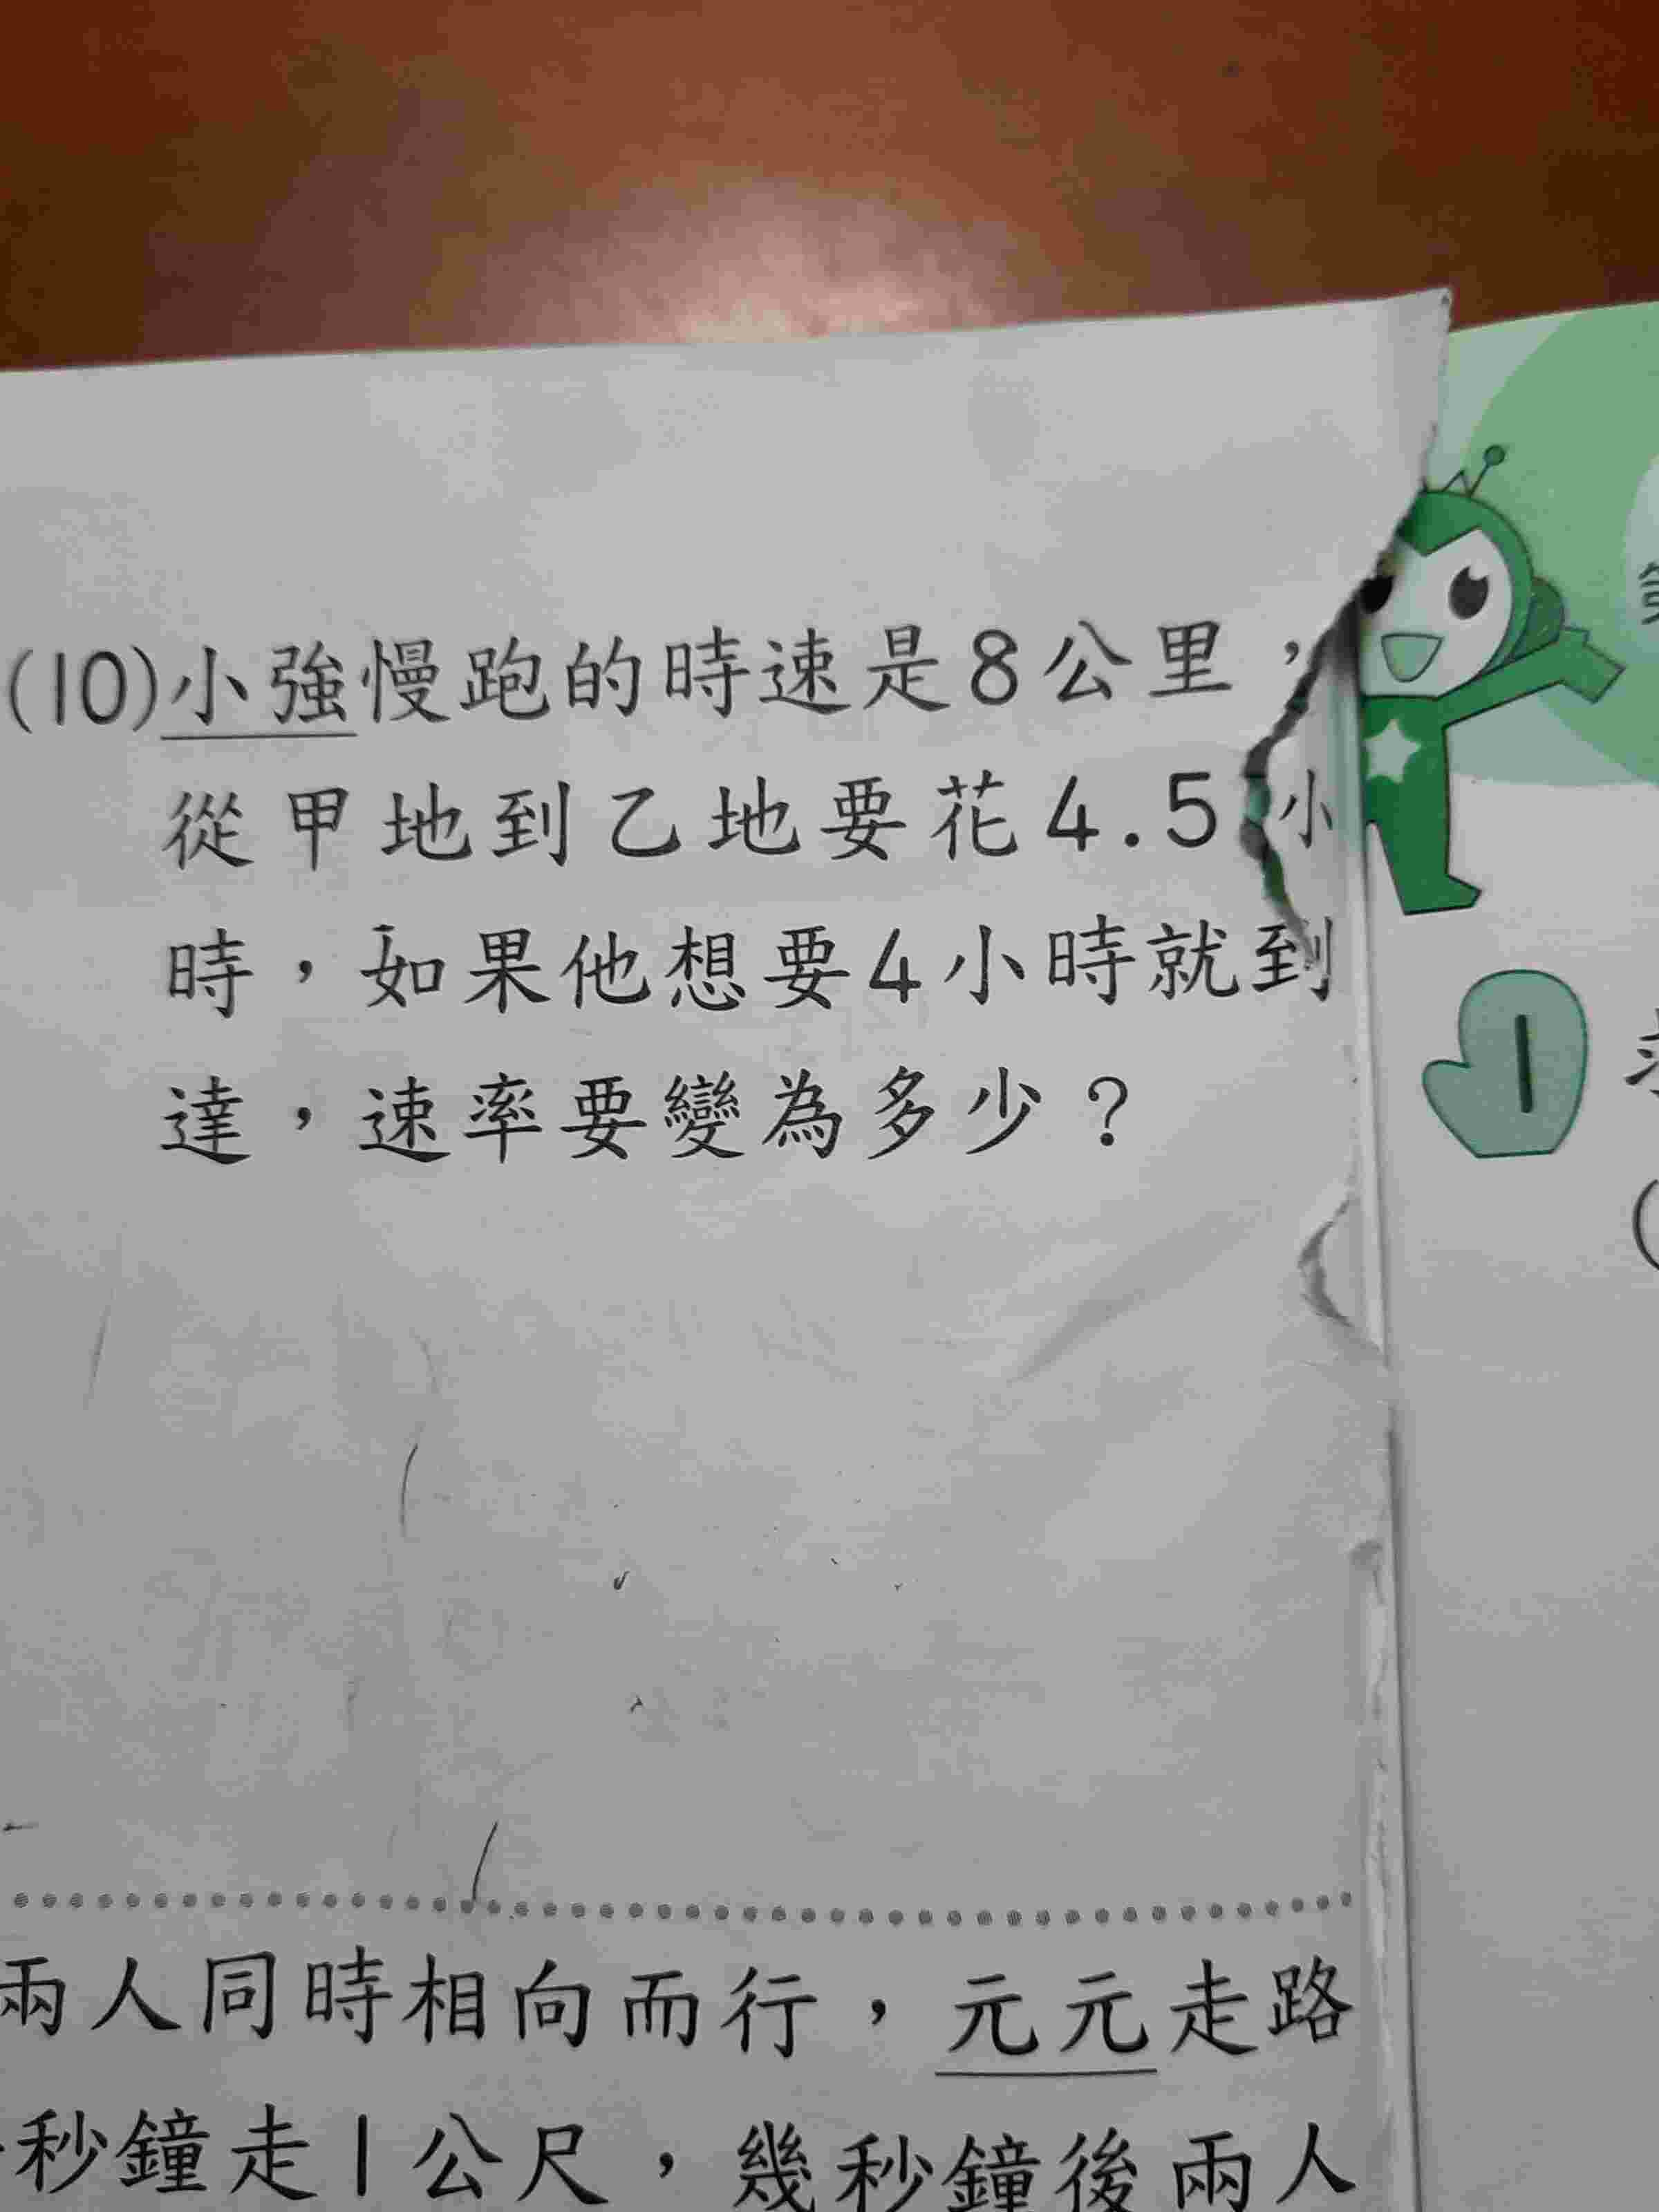 (10)小強慢跑的時速是8公里，
從甲地到乙地要花4.5小
時，如果他想要4小時就到
達，速率要變為多少？
1
兩人同時相向而行，元元走路
秒鐘走1公尺，幾秒鐘後兩人